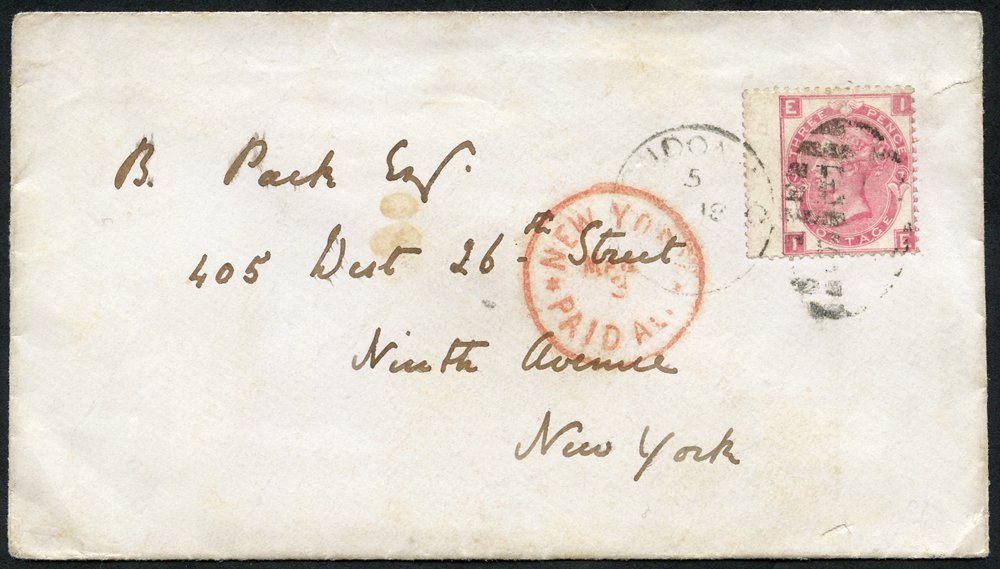 B. Pack Esq.
405 West 26th Street
Ninth Avenue
New York
NEW YORK
PAID ALL
5
E I
THREE PENCE
POSTAGE
I E